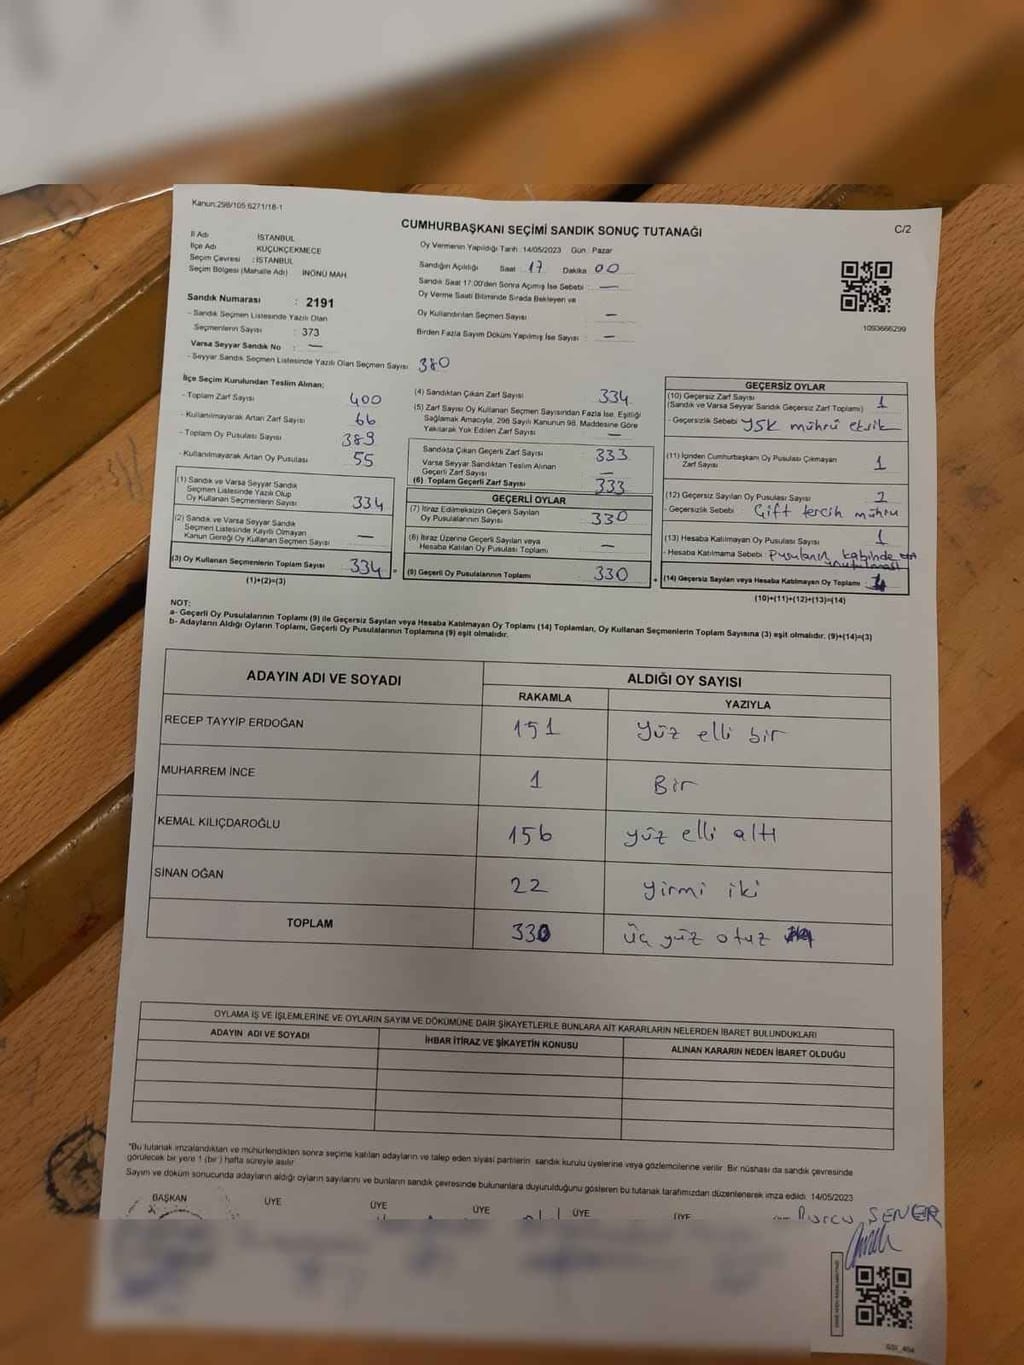 Kanun:298/105 6271/18-1
CUMHURBAŞKANI SEÇİMİ SANDIK SONUÇ TUTANAĞI
C/2
İl Adı İSTANBUL
İlçe Adı KÜÇÜKÇEKMECE
Seçim Çevresi : İSTANBUL
Seçim Bölgesi (Mahalle Adı) İNÖNÜ MAH
Sandık Numarası : 2191
- Sandık Seçmen Listesinde Yazılı Olan
Seçmenlerin Sayısı : 373
Varsa Seyyar Sandık No : —
- Seyyar Sandık Seçmen Listesinde Yazılı Olan Seçmen Sayısı 380
Oy Vermenin Yapıldığı Tarih :14/05/2023 Gün : Pazar
Sandığın Açıldığı Saat 17 Dakika 00
Sandık Saat 17:00'den Sonra Açılmış İse Sebebi : —
Oy Verme Saati Bitiminde Sırada Bekleyen ve
Oy Kullandırılan Seçmen Sayısı : —
Birden Fazla Sayım Döküm Yapılmış İse Sayısı : —
1093666299
İlçe Seçim Kurulundan Teslim Alınan;
- Toplam Zarf Sayısı 400
- Kullanılmayarak Artan Zarf Sayısı 66
- Toplam Oy Pusulası Sayısı 389
- Kullanılmayarak Artan Oy Pusulası 55
(1) Sandık ve Varsa Seyyar Sandık
Seçmen Listesinde Yazılı Olup
Oy Kullanan Seçmenlerin Sayısı 334
(2) Sandık ve Varsa Seyyar Sandık
Seçmen Listesinde Kayıtlı Olmayan
Kanun Gereği Oy Kullanan Seçmen Sayısı —
(3) Oy Kullanan Seçmenlerin Toplam Sayısı 334 =
(1)+(2)=(3)
(4) Sandıktan Çıkan Zarf Sayısı 334
(5) Zarf Sayısı Oy Kullanan Seçmen Sayısından Fazla İse, Eşitliği
Sağlamak Amacıyla, 298 Sayılı Kanunun 98. Maddesine Göre
Yakılarak Yok Edilen Zarf Sayısı —
Sandıkta Çıkan Geçerli Zarf Sayısı 333
Varsa Seyyar Sandıktan Teslim Alınan
Geçerli Zarf Sayısı —
(6) Toplam Geçerli Zarf Sayısı 333
GEÇERLİ OYLAR
(7) İtiraz Edilmeksizin Geçerli Sayılan
Oy Pusulalarının Sayısı 330
(8) İtiraz Üzerine Geçerli Sayılan veya
Hesaba Katılan Oy Pusulası Toplamı —
(9) Geçerli Oy Pusulalarının Toplamı 330 +
GEÇERSİZ OYLAR
(10) Geçersiz Zarf Sayısı
(Sandık ve Varsa Seyyar Sandık Geçersiz Zarf Toplamı) 1
- Geçersizlik Sebebi YSK mührü eksik
(11) İçinden Cumhurbaşkanı Oy Pusulası Çıkmayan
Zarf Sayısı 1
(12) Geçersiz Sayılan Oy Pusulası Sayısı
- Geçersizlik Sebebi Çift tercih mührü
(13) Hesaba Katılmayan Oy Pusulası Sayısı 1
- Hesaba Katılmama Sebebi : Pusulanın kabinde unutulması
(14) Geçersiz Sayılan veya Hesaba Katılmayan Oy Toplamı 4
(10)+(11)+(12)+(13)=(14)
NOT:
a- Geçerli Oy Pusulalarının Toplamı (9) ile Geçersiz Sayılan veya Hesaba Katılmayan Oy Toplamı (14) Toplamları, Oy Kullanan Seçmenlerin Toplam Sayısına (3) eşit olmalıdır. (9)+(14)=(3)
b- Adayların Aldığı Oyların Toplamı, Geçerli Oy Pusulalarının Toplamına (9) eşit olmalıdır.
ADAYIN ADI VE SOYADI ALDIĞI OY SAYISI
RAKAMLA YAZIYLA
RECEP TAYYİP ERDOĞAN 151 Yüz elli bir
MUHARREM İNCE 1 Bir
KEMAL KILIÇDAROĞLU 156 yüz elli altı
SİNAN OĞAN 22 yirmi iki
TOPLAM 330 üç yüz otuz
OYLAMA İŞ VE İŞLEMLERİNE VE OYLARIN SAYIM VE DÖKÜMÜNE DAİR ŞİKAYETLERLE BUNLARA AİT KARARLARIN NELERDEN İBARET BULUNDUKLARI
ADAYIN ADI VE SOYADI İHBAR İTİRAZ VE ŞİKAYETİN KONUSU ALINAN KARARIN NEDEN İBARET OLDUĞU
*Bu tutanak imzalandıktan ve mühürlendikten sonra seçime katılan adayların ve talep eden siyasi partilerin sandık kurulu üyelerine veya gözlemcilerine verilir. Bir nüshası da sandık çevresinde
görülecek bir yere 1 (bir) hafta süreyle asılır.
Sayım ve döküm sonucunda adayların aldığı oyların sayılarını ve bunların sandık çevresinde bulunanlara duyurulduğunu gösteren bu tutanak tarafımızdan düzenlenerek imza edildi. 14/05/2023
BAŞKAN ÜYE ÜYE ÜYE ÜYE ÜYE
Burcu ŞENER